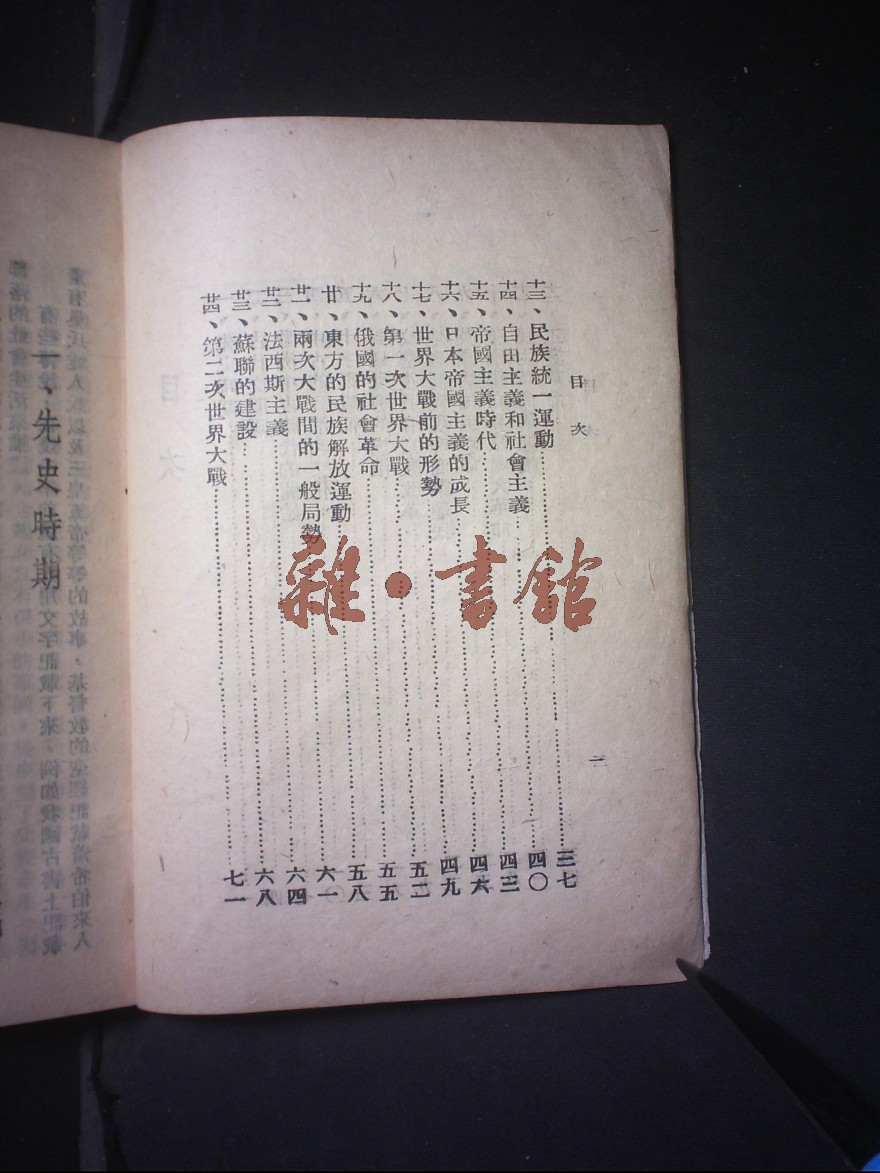 目次
十三、民族統一運動……三七
十四、自由主義和社會主義……四〇
十五、帝國主義時代……四三
十六、日本帝國主義的成長……四六
十七、世界大戰前的形勢……四九
十八、第一次世界大戰……五二
十九、俄國的社會革命……五五
廿、東方的民族解放運動……五八
廿一、兩次大戰間的一般局勢……六一
廿二、法西斯主義……六四
廿三、蘇聯的建設……六八
廿四、第二次世界大戰……七一
二
一、先史時期
雜·書館